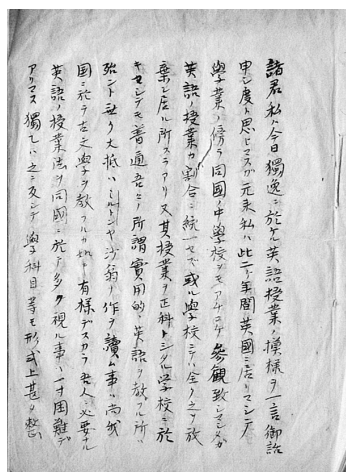 諸君私ハ今日獨逸ニ於ケル英語授業ノ模様ヲ一言御話
申シ度ト思ヒマスガ元来私ハ此一二年間英國ニ居リマシテ
學業ノ傍ラ同國ノ中學校ヲモアチコチ参観致シマシタガ
英語ノ授業ガ割合ニ統一セズ或ル學校ニテハ全ク之ヲ放
棄シ居ル所スラアリ又其授業ヲ正科トシタル学校ニ於
キマシテモ普通吾々ノ所謂實用的ノ英語ヲ教フル所ハ
殆ント無ク大抵ハミルトンヤ沙翁ノ作ヲ讀ム事ハ尚我
国ニ於テ古文學ヲ教フルガ如キ有様デスカラ吾人ニ必要ナル
英語ノ授業法ヲ同國ニ於テ多ク視ル事ハ一寸困難デ
アリマス獨乙ハ之ニ反シテ學科目等モ形式上甚タ整